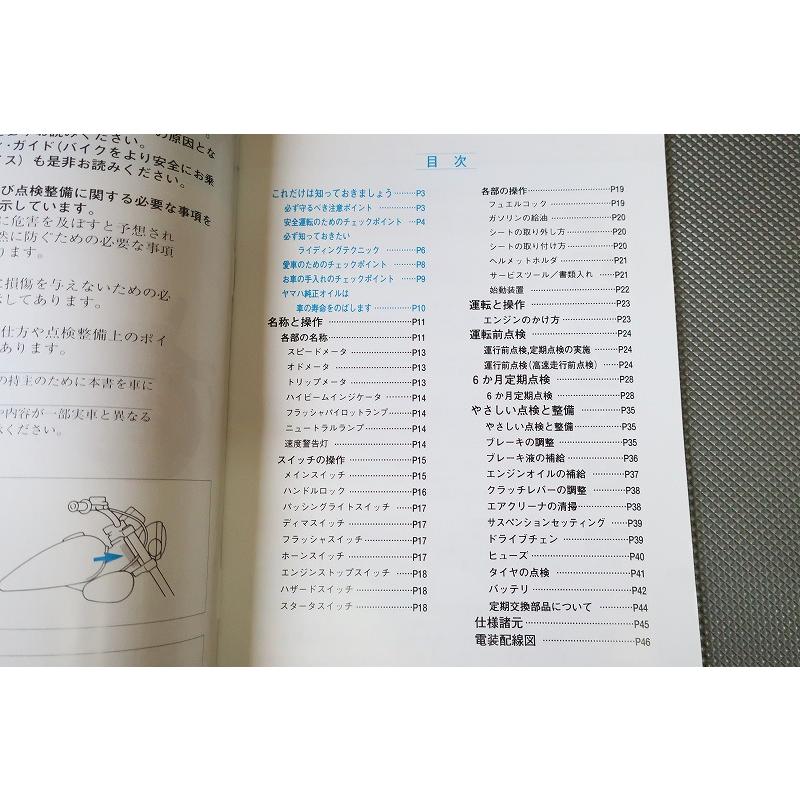 の原因とな
お読みください。
・ガイド(バイクをより安全にお乗
イス)も是非お読みください。
び点検整備に関する必要な事項を
示しています。
に危害を及ぼすと予想され
然に防ぐための必要な事項
ります。
に損傷を与えないための必
示してあります。
仕方や点検整備上のポイ
あります。
の持主のために本書を車に
や内容が一部実車と異なる
ください。
目次
これだけは知っておきましょう………P3
必ず守るべき注意ポイント …………P3
安全運転のためのチェックポイント …P4
必ず知っておきたい
ライディングテクニック …………P6
愛車のためのチェックポイント ………P8
お車の手入れのチェックポイント ……P9
ヤマハ純正オイルは
車の寿命をのばします …………P10
名称と操作……………………P11
各部の名称……………………P11
スピードメータ ………………P13
オドメータ ……………………P13
トリップメータ ………………P13
ハイビームインジケータ ………P14
フラッシャパイロットランプ………P14
ニュートラルランプ……………P14
速度警告灯 ……………………P14
スイッチの操作 ………………P15
メインスイッチ…………………P15
ハンドルロック…………………P16
パッシングライトスイッチ ………P17
ディマスイッチ…………………P17
フラッシャスイッチ……………P17
ホーンスイッチ…………………P17
エンジンストップスイッチ ………P18
ハザードスイッチ………………P18
スタータスイッチ………………P18
各部の操作……………………P19
フューエルコック………………P19
ガソリンの給油 ………………P20
シートの取り外し方……………P20
シートの取り付け方……………P20
ヘルメットホルダ………………P21
サービスツール/書類入れ ……P21
始動装置 ………………………P22
運転と操作……………………P23
エンジンのかけ方………………P23
運転前点検……………………P24
運行前点検,定期点検の実施 ……P24
運行前点検(高速走行前点検) ……P24
6か月定期点検 ………………P28
6か月定期点検 ………………P28
やさしい点検と整備 ……………P35
やさしい点検と整備……………P35
ブレーキの調整 ………………P35
ブレーキ液の補給 ……………P36
エンジンオイルの補給 …………P37
クラッチレバーの調整 …………P38
エアクリーナの清掃……………P38
サスペンションセッティング ……P39
ドライブチェン…………………P39
ヒューズ ………………………P40
タイヤの点検 …………………P41
バッテリ ………………………P42
定期交換部品について …………P44
仕様諸元………………………P45
電装配線図 ……………………P46